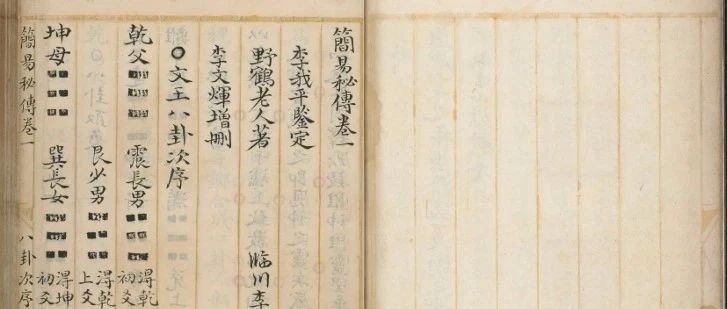 簡易秘傳卷一
李我平鑒定
野鶴老人著 臨川李
李文輝增刪
○文王八卦次序
乾父 震長男 淂乾初爻
艮少男 淂乾上爻
坤母 巽長女 淂坤初爻
簡易秘傳卷一 八卦次序